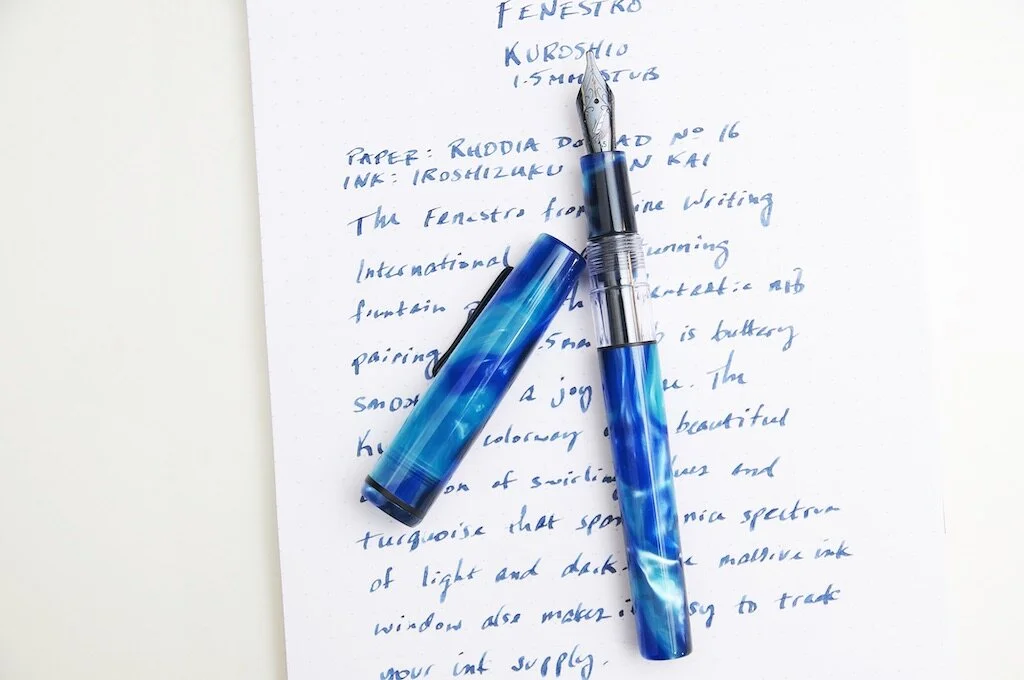 FENESTRO
KUROSHIO
1.5MM STUB
PAPER: RHODIA DO AD Nº 16
INK: IROSHIZUKU N KAI
The Fenestro from ine Writing
International unning
fountain th antastic nib
pairing .5mm b is buttery
smoo a joy e. The
Ku colorway beautiful
on of swirling ues and
turquoise that span mic spectrum
of light and dark. e massive ink
window also makes i sy to track
your ink supply.